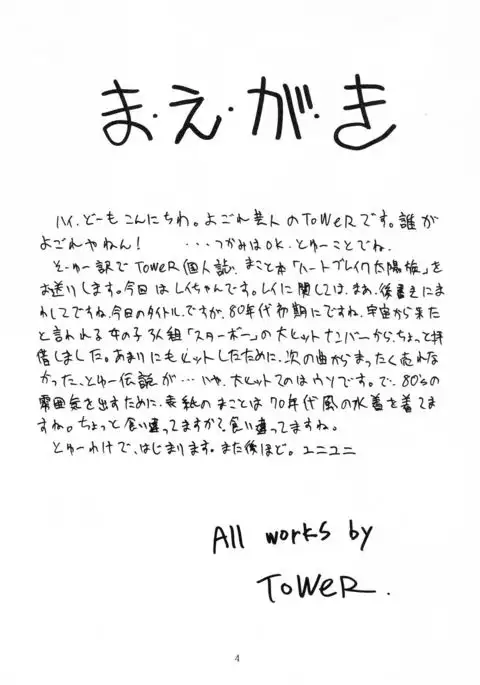 ま・え・が・き
ハイ、どーもこんにちわ。よごれ芸人のToWeRです。誰が
よごれやねん!　・・・つかみはOK、とゆーことでね。
そーゆー訳でToWeR個人誌、まこと本「ハートブレイク太陽族」を
お送りします。今回はレイちゃんです。レイに関しては、まぁ、後書きにま
わしてですね、今日のタイトルですが、80年代初期にですね、宇宙から来た
と言われる女の子3人組「スターボー」の大ヒットナンバーから、ちょっと拝
借しました。あまりにもヒットしたために、次の曲からまったく売れな
かった、とゆー伝説が・・・いや、大ヒットてのはウソです。で、80'sの
雰囲気を出すために、表紙のまことは70年代風の水着を着てま
すね。ちょっと食い違ってますか?食い違ってますね。
とゆーわけで、はじまります。また後ほど。ユニユニ
All works by
ToWeR.
4